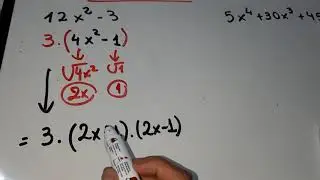 12x² - 3
3.(4x² - 1)
√4x² √1
2x 1
= 3.(2x 1).(2x-1)
5x⁴ + 30x³ + 45